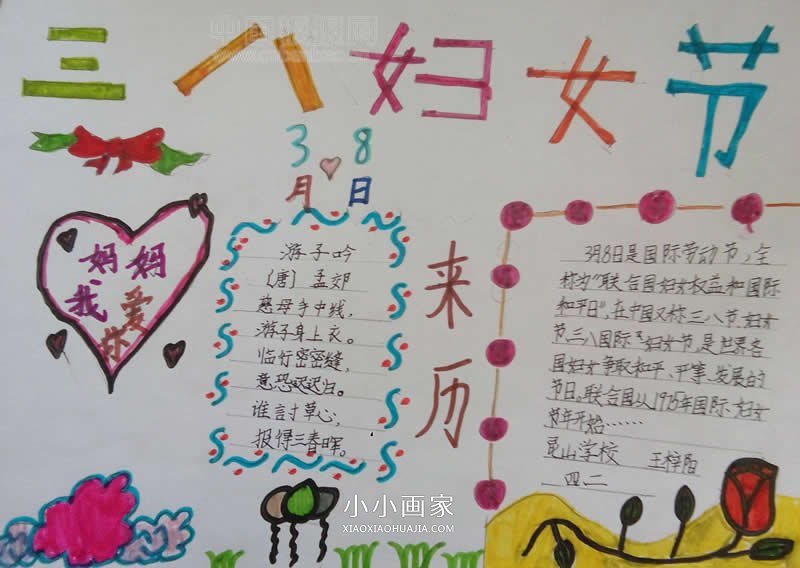 三八妇女节
3 8
月 日
妈妈
我爱
你
游子吟
〔唐〕孟郊
慈母手中线,
游子身上衣。
临行密密缝,
意恐迟迟归。
谁言寸草心,
报得三春晖。
来历
3月8日是国际劳动节,全
称为“联合国妇女权益和国际
和平日”,在中国又称三八节、妇女
节、三八国际妇女节,是世界各
国妇女争取和平、平等、发展的
节日。联合国从1975年国际妇女
年开始……
昆山学校 王梓阳
四二
小小画家
XIAOXIAOHUAJIA.COM